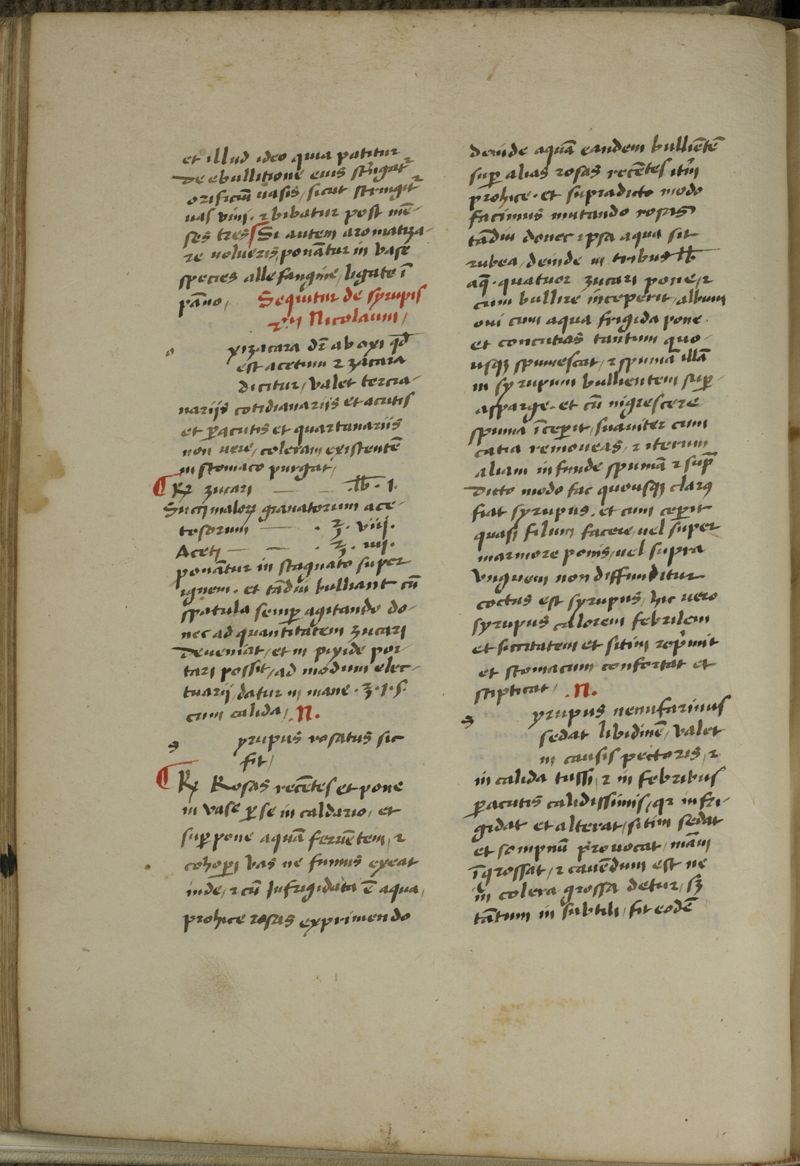 et illud ideo quia patitur
De ebullitione eius stringat
orificiū uasis, sicut stringit
uas vini. ⁊ bibatur post mē-
ses tres Si autem aromatiza-
re uolueris, ponātur in vase
species alle fangine, ligate ī
pāno, Sequitur de syrupis
Nicolaum,
o yizacara dr̄ ab oxi qd̄
est acetum ⁊ zacara
dicitur, valet tercia-
narijs cotidianarijs et acutis
et ꝑacutis et quartanarijs
non uere, coleram existentē
in stomaco purgat,
¶ ℞ zucari — — .℔. 1.
Succi maloꝝ granatorum ace-
tosorum — . ℥. viij.
Aceti — — . ℥. iiij.
ponātur in stagnato super
ignem. et tādiu bulliant cū
spatula semꝑ agitando do-
nec ad quantitatem zucari
Deueniat, et in pixide por-
tari possit, ad modum elec-
tuarij datur in mane . ℥. 1. s.
cum calida, .N.
s yrupus rosatus sic
fit,
¶ ℞ Rosas recētes et pone
in vase ꝑ se in caldario, et
suꝑ pone aquā feruētem, ⁊
cohoꝑi vas ne fumus exeat
inde, ⁊ cū Infrigidata ē aqua,
prohice rosas exprimendo
deinde aquā eandem bulliētē
suꝑ alias rosas recētes itm̄
prohice. et supradicto modo
facimus mutando rosas
tādiu donec ipsa aqua sit
rubea, deinde in tribus ℔
aq̄. quatuor zucari pone, ⁊
cum bullire inceperit, album
oui cum aqua frigida pone.
et concutias tantum quo-
usqꝫ spumescat, ⁊ spumā illā
in syrupum bullientem suꝑ-
asparge. et cū nigrescere
spuma īceꝑit, suauiter cum
catia remoueas, ⁊ iterum
aliam infunde spumā ⁊ sup̄
Dicto modo fac quousqꝫ clarꝰ
fiat syrupus. et cum ceꝑit
quasi filum facere, uel super
marmore ponis, uel supra
Vnguem non diffunditur
coctus est syrupus, hic uero
syrupus calorem febrilem
et siccitatem et sitim rep̄mit
et stomacum confortat et
stipticat, .N.
s yrupus nenufarinus
sedat libidinē, valet
in causis pectoris, ⁊
in calida tussi, ⁊ in febribus
ꝑacutis calidissimis, qꝛ infri-
gidat et alterat, sitim sedat
et sompnū prouocat, mām
īgrossat, ⁊ cauēdum est ne
in colera grossa detur, sꝫ
tātum in subtili, fit eodē